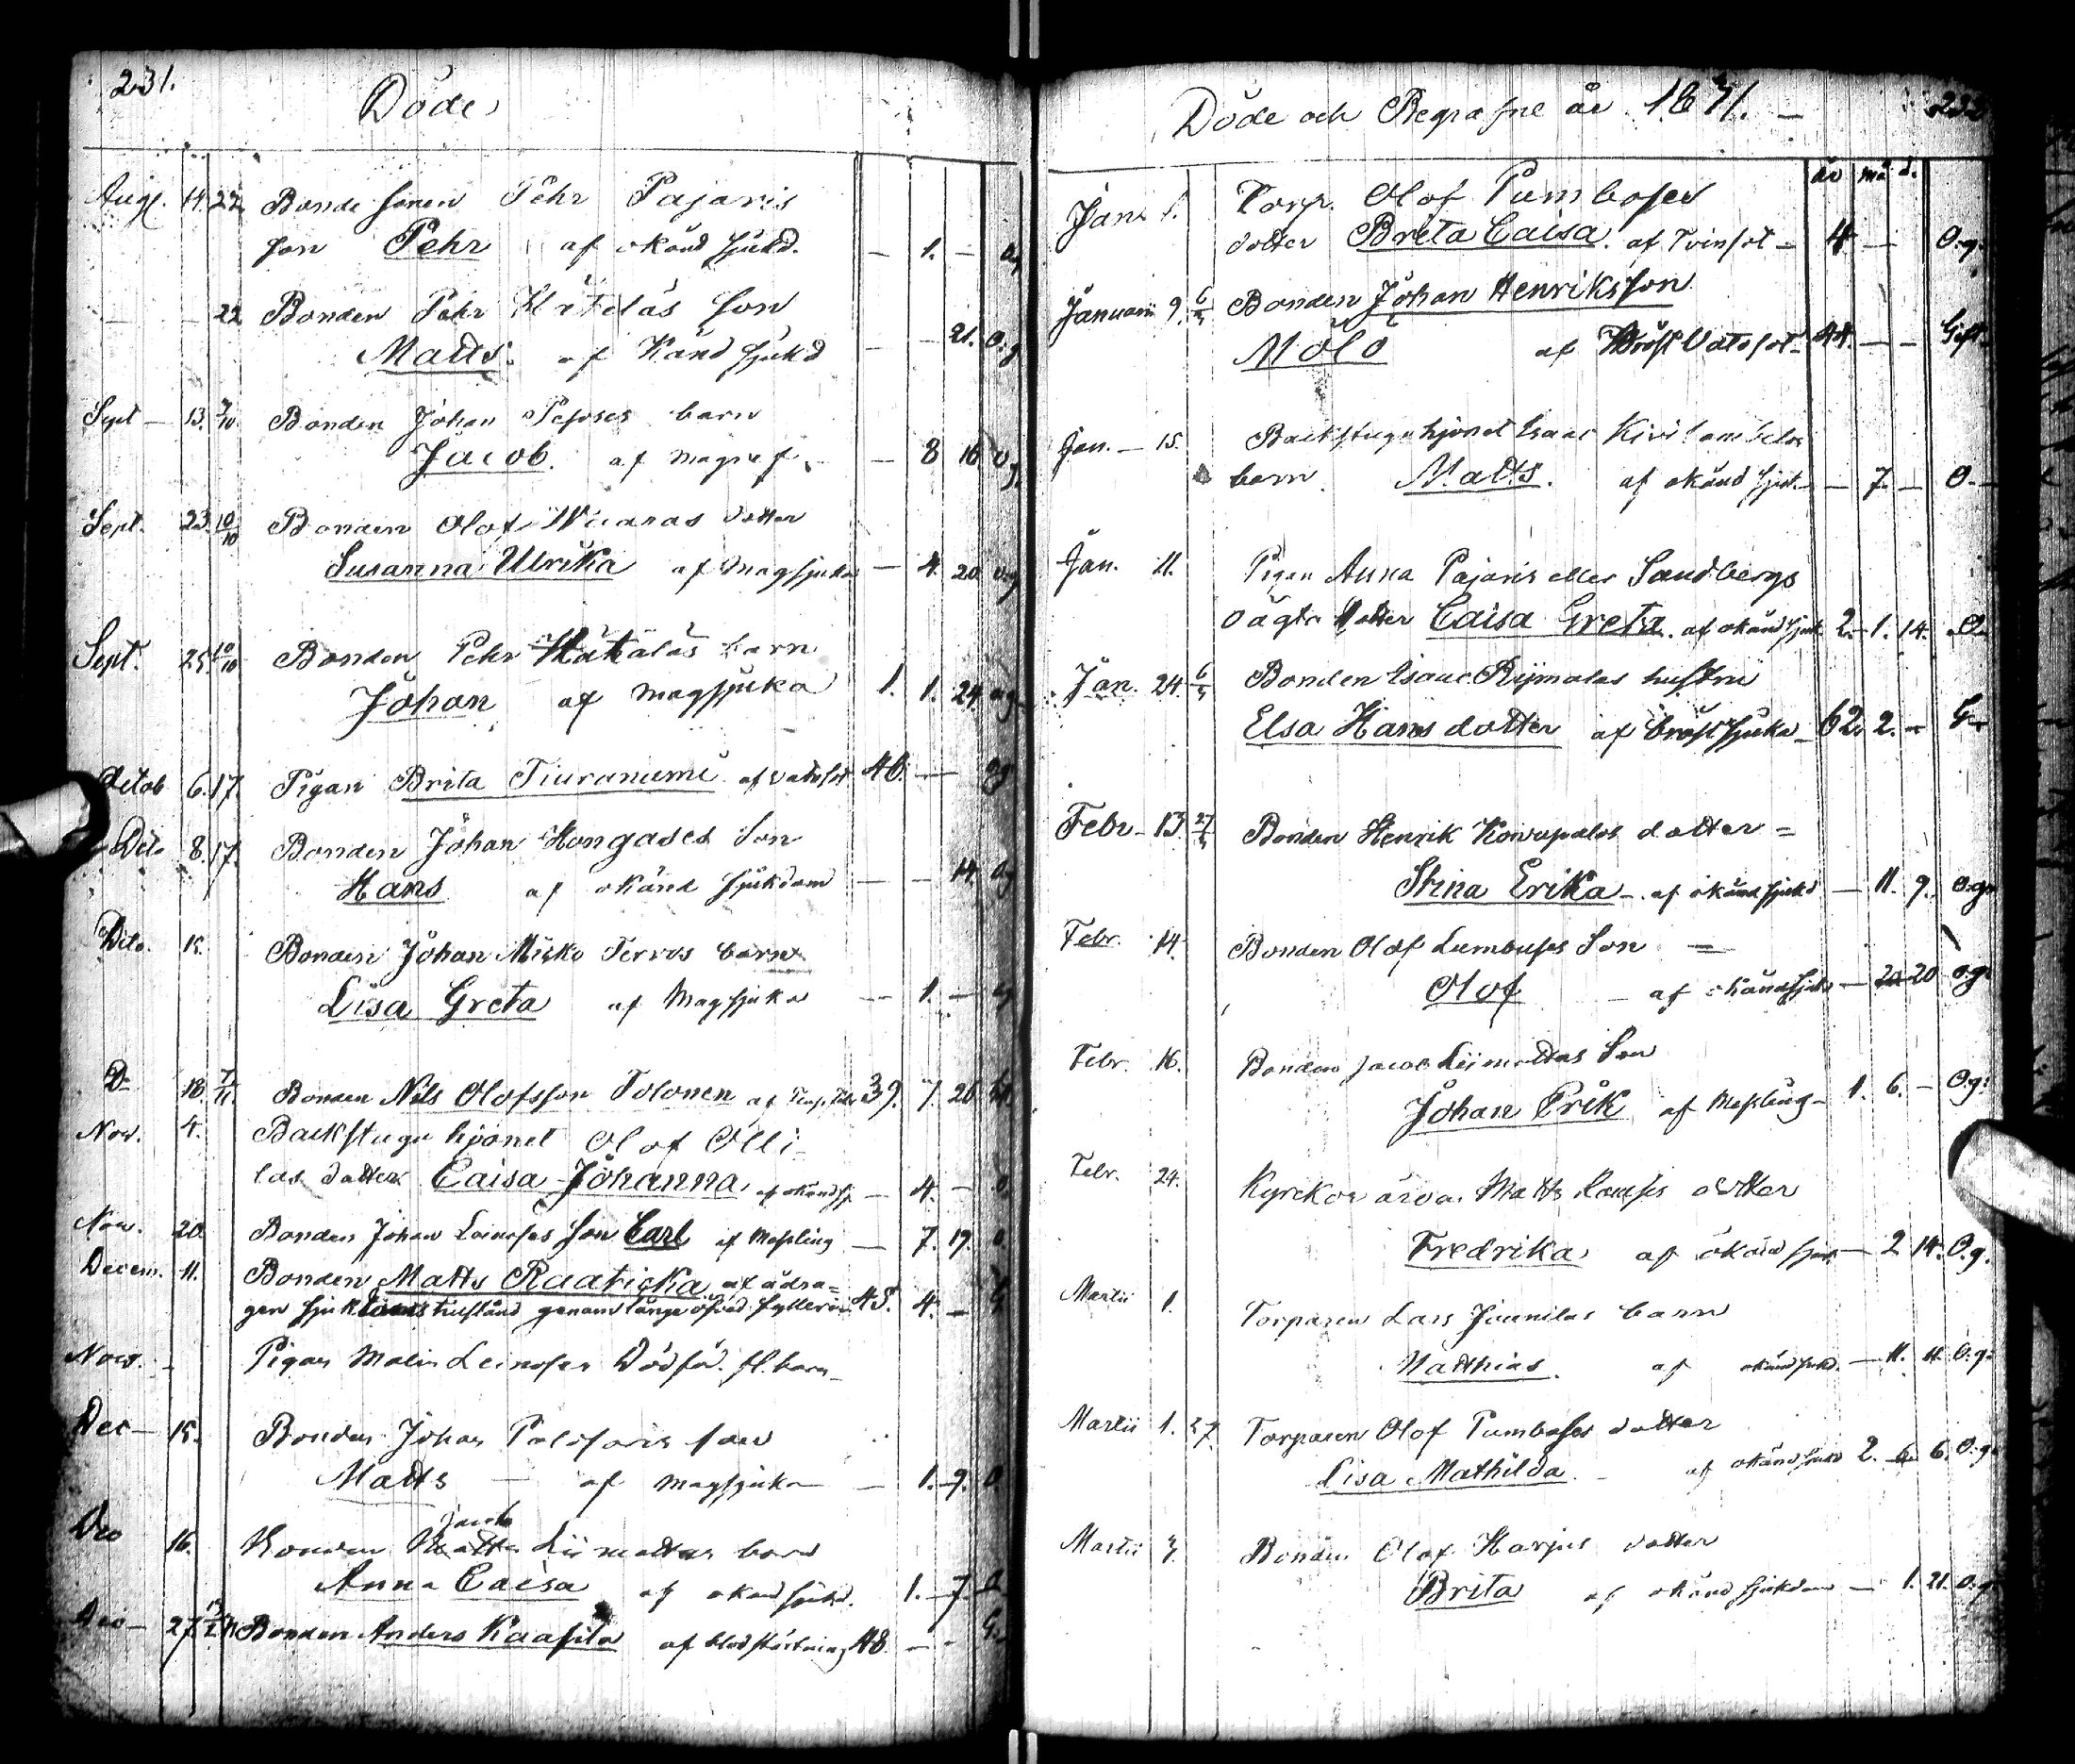 231.
Döde
Aug. 14. 22 Bonde sonen Pehr Pajaris
son Pehr af okänd sjukd. — 1. — Og
— — 22 Bonden Pehr Hätäläs son
Matts af känd sjukd — — 21. O.g
Sept — 13. 9/10 Bonden Johan Pesoses barn
Jacob. af — 8 16 Og.
Sept. 23. 10/10 Bonden Olof Waaras dotter
Susanna Ulrika af Magsjuka — 4. 20 Og
Sept. 25. 10/10 Bonden Pehr Hätäläs barn
Johan af magsjuka 1. 1. 24. og
Octob 6. 17. Pigan Brita Tiuraniemi af vatusot 46. —
Dito 8. 17. Bonden Johan Hongases Son
Hans af okänd sjukdom — — 14. Og
Dito. 15. Bonden Johan Misko Tervos barn
Lisa Greta af Magsjuka — 1. —
D— 18. 7/11. Bonden Nils Olofsson Tolonen af 39. 7. 26
Nov. 4. Backstugu hjonet Olof Olli
las dotter Caisa Johanna af okänd sj. — 4. — O.
Nov. 20 Bonden Johan Leinoses son Carl af Messling — 7. 19. O.
Decem. 11. Bonden Matts Raaticka af ådra=
gen sjukdoms tillstånd genom länge öfvad fylleri 45. 4. — G
Nov. — Pigan Malin Leinoses Dödföd. fl. barn
Dec — 15. Bonden Johan Palosaris son
Matts — af magsjuka — 1. 9. O.
Jacob
Dec 16. Bonden Matts Liimattas barn
Anna Caisa af okänd sjukd. 1. 7. O
Dec — 27 Bonden Anders Kaasila af blodstörtning 48. — - G.
232
Döde och Begrafne år 1871. —
år må d.
Janr 1. Torp. Olof Pumboses
dotter Breta Caisa af Tvinsot — 4. — O.g.
Januarii 9. Bonden Johan Henriksson
Mölö af Bröst Vatusot — 44. — — Gift
Jan. — 15. Backstuguhjonet Isaac Kivilambelas
barn. Matts. af okänd sjukd. — 7. — O. —
Jan. 11. Pigan Anna Pajaris eller Sandbergs
oägta dotter Caisa Greta. af okänd sjuk 2. 1. 14. O.
Jan. 24. Bonden Isaac Rijmalas hustru
Elsa Hans dotter af bröstsjuka — 62. 2. — G
Febr. 13. Bonden Henrik Kovapalos dotter =
Stina Erika — af okänd sjukd — 11. 9. O.g.
Febr. 14. Bonden Olof Lumbuses Son =
Olof — af okänd sjuk — 20 O.g.
Febr. 16. Bonden Jacob Liimattas Son
Johan Erik af Messling — 1. 6. — O.g.
Febr. 24. Matts dotter
Fredrika af okänd sjuk — 2 14. O.g.
Martii 1. Torparen Lars Juunilas barn
Matthias. af okänd sjukd. — 11. 11. O.g.
Martii 1. Torparen Olof Pumboses dotter
Lisa Mathilda. — af okänd sjukd 2. 6. O.g.
Martii Bonden Olof Harjus dotter
Brita af okänd sjukdom — 1. 21. O.g